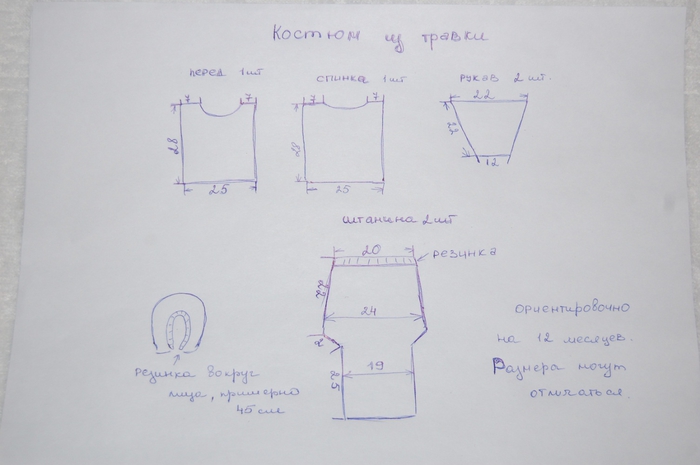 Костюм из травки
перед 1 шт
спинка 1 шт
рукав 2 шт.
7 7
28
25
7 7
28
25
22
23
12
штанина 2 шт
20
резинка
22
24
2
19
25
резинка вокруг
лица, примерно
45 см
ориентировочно
на 12 месяцев.
Размера могут
отличаться.